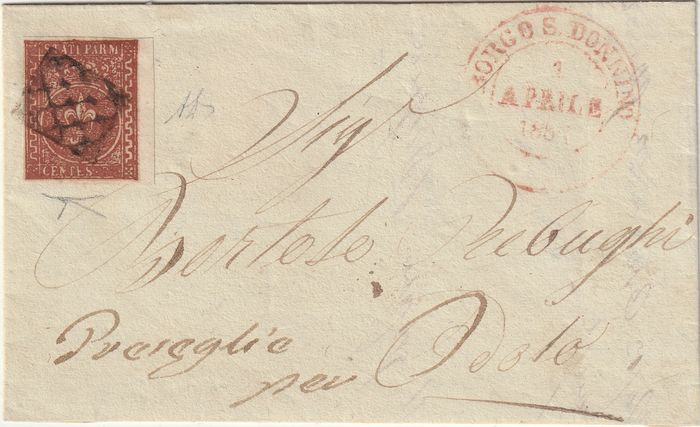 STATI PARM
CENTES.
BORGO S. DONNINO
1
APRILE
185
Sigr
Bortolo Rebughi
Preseglie
per Odolo